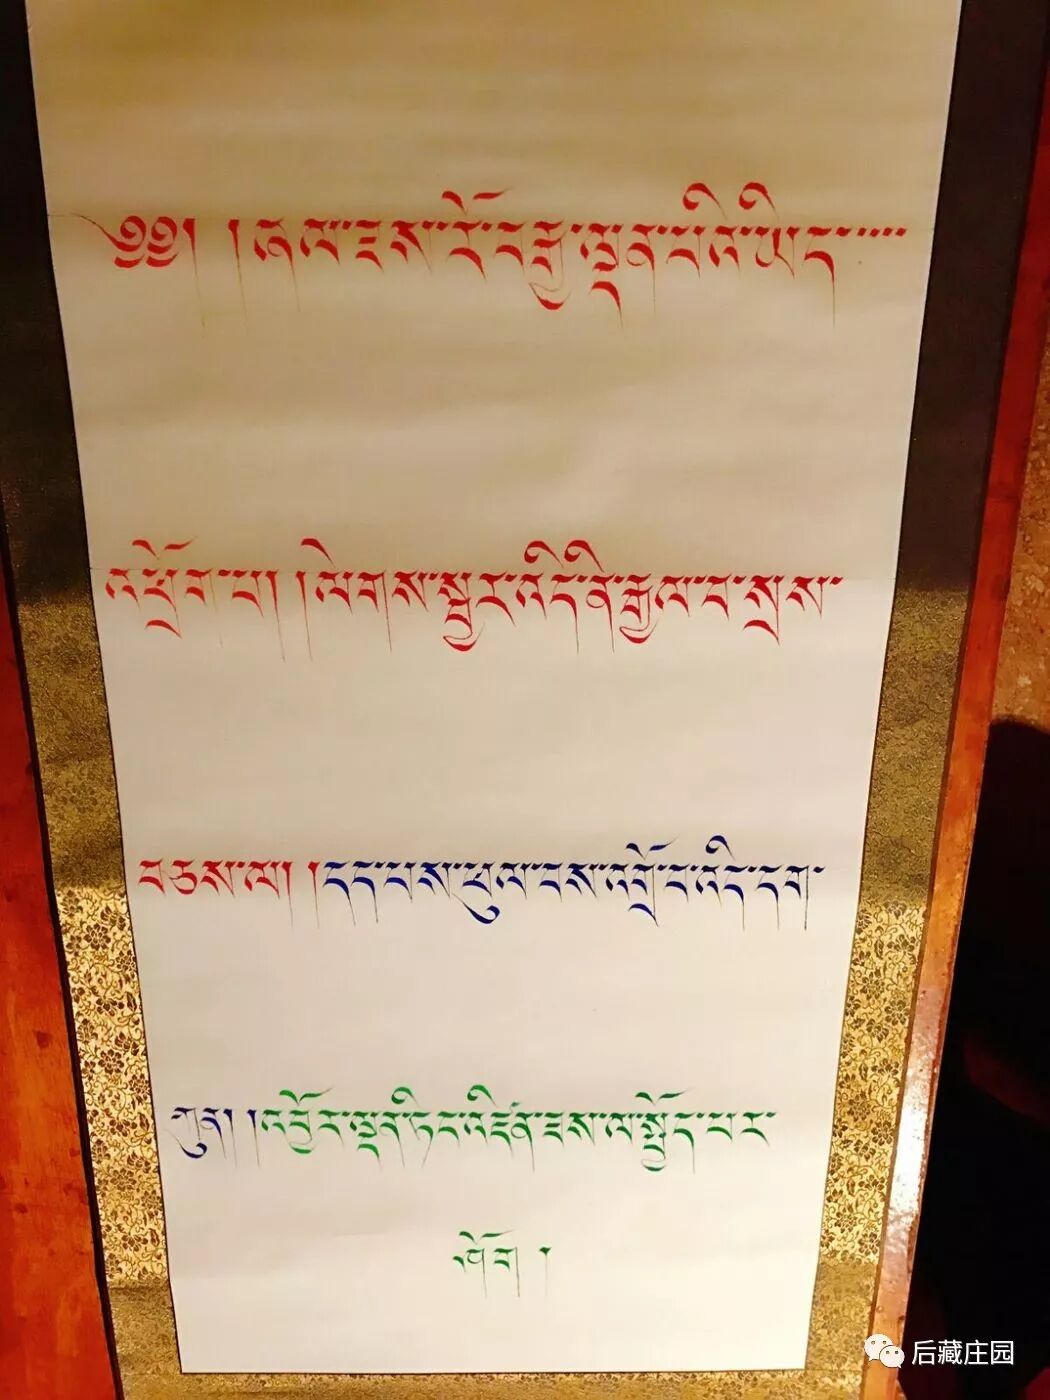 ༄༅། །ཞལ་ཟས་རོ་བརྒྱ་ལྡན་པའི་ཡིད་་་་
འཕྲོག་པ། །ལེགས་སྦྱར་འདི་ནི་རྒྱལ་བ་སྲས་
བཅས་ལ། །དད་པས་ཕུལ་བས་འགྲོ་བ་འདི་དག་
ཀུན། །འབྱོར་ལྡན་ཏིང་འཛིན་ཟས་ལ་སྤྱོད་པར་
ཤོག །
后藏庄园